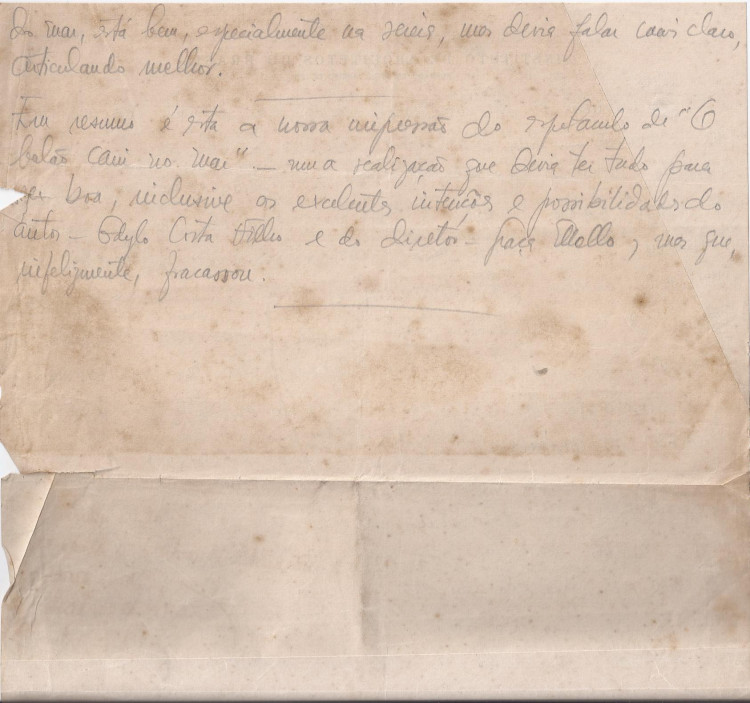 do mar, está bem, especialmente na sereia, mas devia falar mais claro,
articulando melhor.
Em resumo é esta a nossa impressão do espetáculo de "O
balão caiu no mar" – uma realização que devia ter tudo para
ser boa, inclusive as excelentes intenções e possibilidades do
autor – Odylo Costa Filho e do diretor – Graça Mello, mas que,
infelizmente, fracassou.